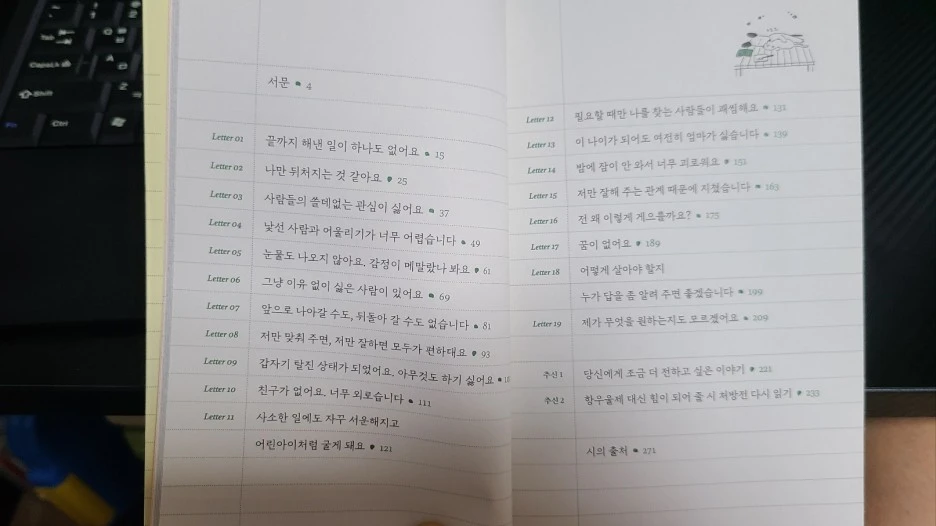 서문 4
Letter 01 끝까지 해낸 일이 하나도 없어요 15
Letter 02 나만 뒤처지는 것 같아요 25
Letter 03 사람들의 쓸데없는 관심이 싫어요 37
Letter 04 낯선 사람과 어울리기가 너무 어렵습니다 49
Letter 05 눈물도 나오지 않아요. 감정이 메말랐나 봐요 61
Letter 06 그냥 이유 없이 싫은 사람이 있어요 69
Letter 07 앞으로 나아갈 수도, 뒤돌아 갈 수도 없습니다 81
Letter 08 저만 맞춰 주면, 저만 잘하면 모두가 편하대요 93
Letter 09 갑자기 탈진 상태가 되었어요. 아무것도 하기 싫어요
Letter 10 친구가 없어요. 너무 외로습니다 111
Letter 11 사소한 일에도 자꾸 서운해지고
어린아이처럼 굴게 돼요 121
Letter 12 필요할 때만 나를 찾는 사람들이 괘씸해요 131
Letter 13 이 나이가 되어도 여전히 엄마가 싫습니다 139
Letter 14 밤에 잠이 안 와서 너무 괴로워요 151
Letter 15 저만 잘해 주는 관계 때문에 지쳤습니다 163
Letter 16 전 왜 이렇게 게으를까요? 175
Letter 17 꿈이 없어요 189
Letter 18 어떻게 살아야 할지
누가 답을 좀 알려 주면 좋겠습니다 199
Letter 19 제가 무엇을 원하는지도 모르겠어요 209
추신 1 당신에게 조금 더 전하고 싶은 이야기 221
추신 2 항우울제 대신 힘이 되어 줄 시 처방전 다시 읽기 233
시의 출처 271
Tab
CapsLk
Shift
Fn
Ctrl